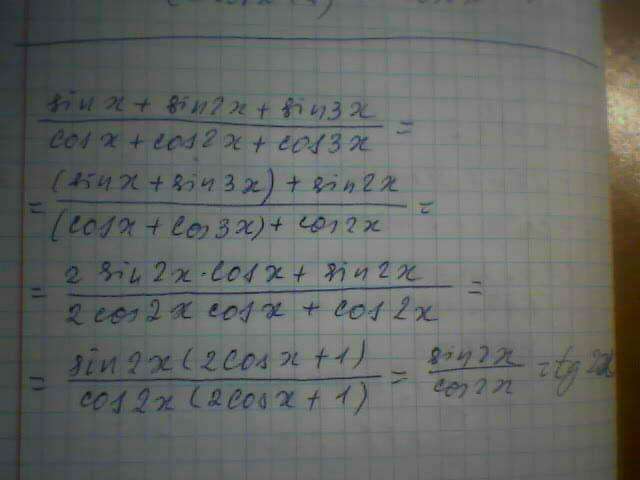 sin x + sin 2x + sin 3x / cos x + cos 2x + cos 3x =
= (sin x + sin 3x) + sin 2x / (cos x + cos 3x) + cos 2x =
= 2 sin 2x · cos x + sin 2x / 2 cos 2x cos x + cos 2x =
= sin 2x (2 cos x + 1) / cos 2x (2 cos x + 1) = sin 2x / cos 2x = tg 2x